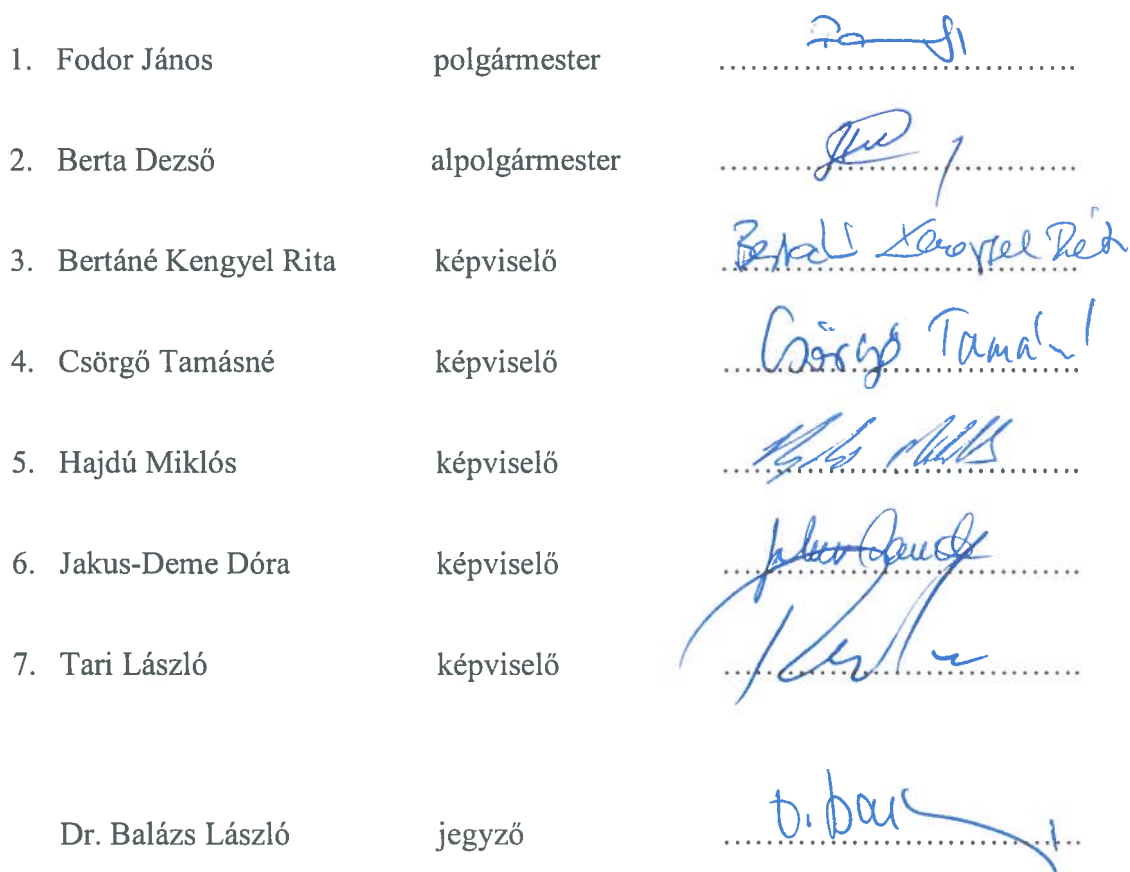 1. Fodor János polgármester ..............................
2. Berta Dezső alpolgármester ..............................
3. Bertáné Kengyel Rita képviselő ..............................
4. Csörgő Tamásné képviselő .............................. Csörgő Tamás
5. Hajdú Miklós képviselő ..............................
6. Jakus-Deme Dóra képviselő ..............................
7. Tari László képviselő ..............................
Dr. Balázs László jegyző ..............................